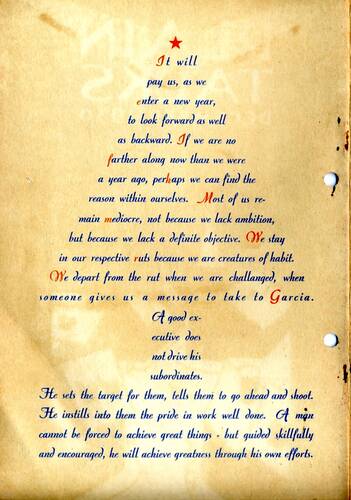 It will
pay us, as we
enter a new year,
to look forward as well
as backward. If we are no
farther along now than we were
a year ago, perhaps we can find the
reason within ourselves. Most of us re-
main mediocre, not because we lack ambition,
but because we lack a definite objective. We stay
in our respective ruts because we are creatures of habit.
We depart from the rut when we are challanged, when
someone gives us a message to take to Garcia.
A good ex-
ecutive does
not drive his
subordinates.
He sets the target for them, tells them to go ahead and shoot.
He instills into them the pride in work well done. A man
cannot be forced to achieve great things - but guided skillfully
and encouraged, he will achieve greatness through his own efforts.